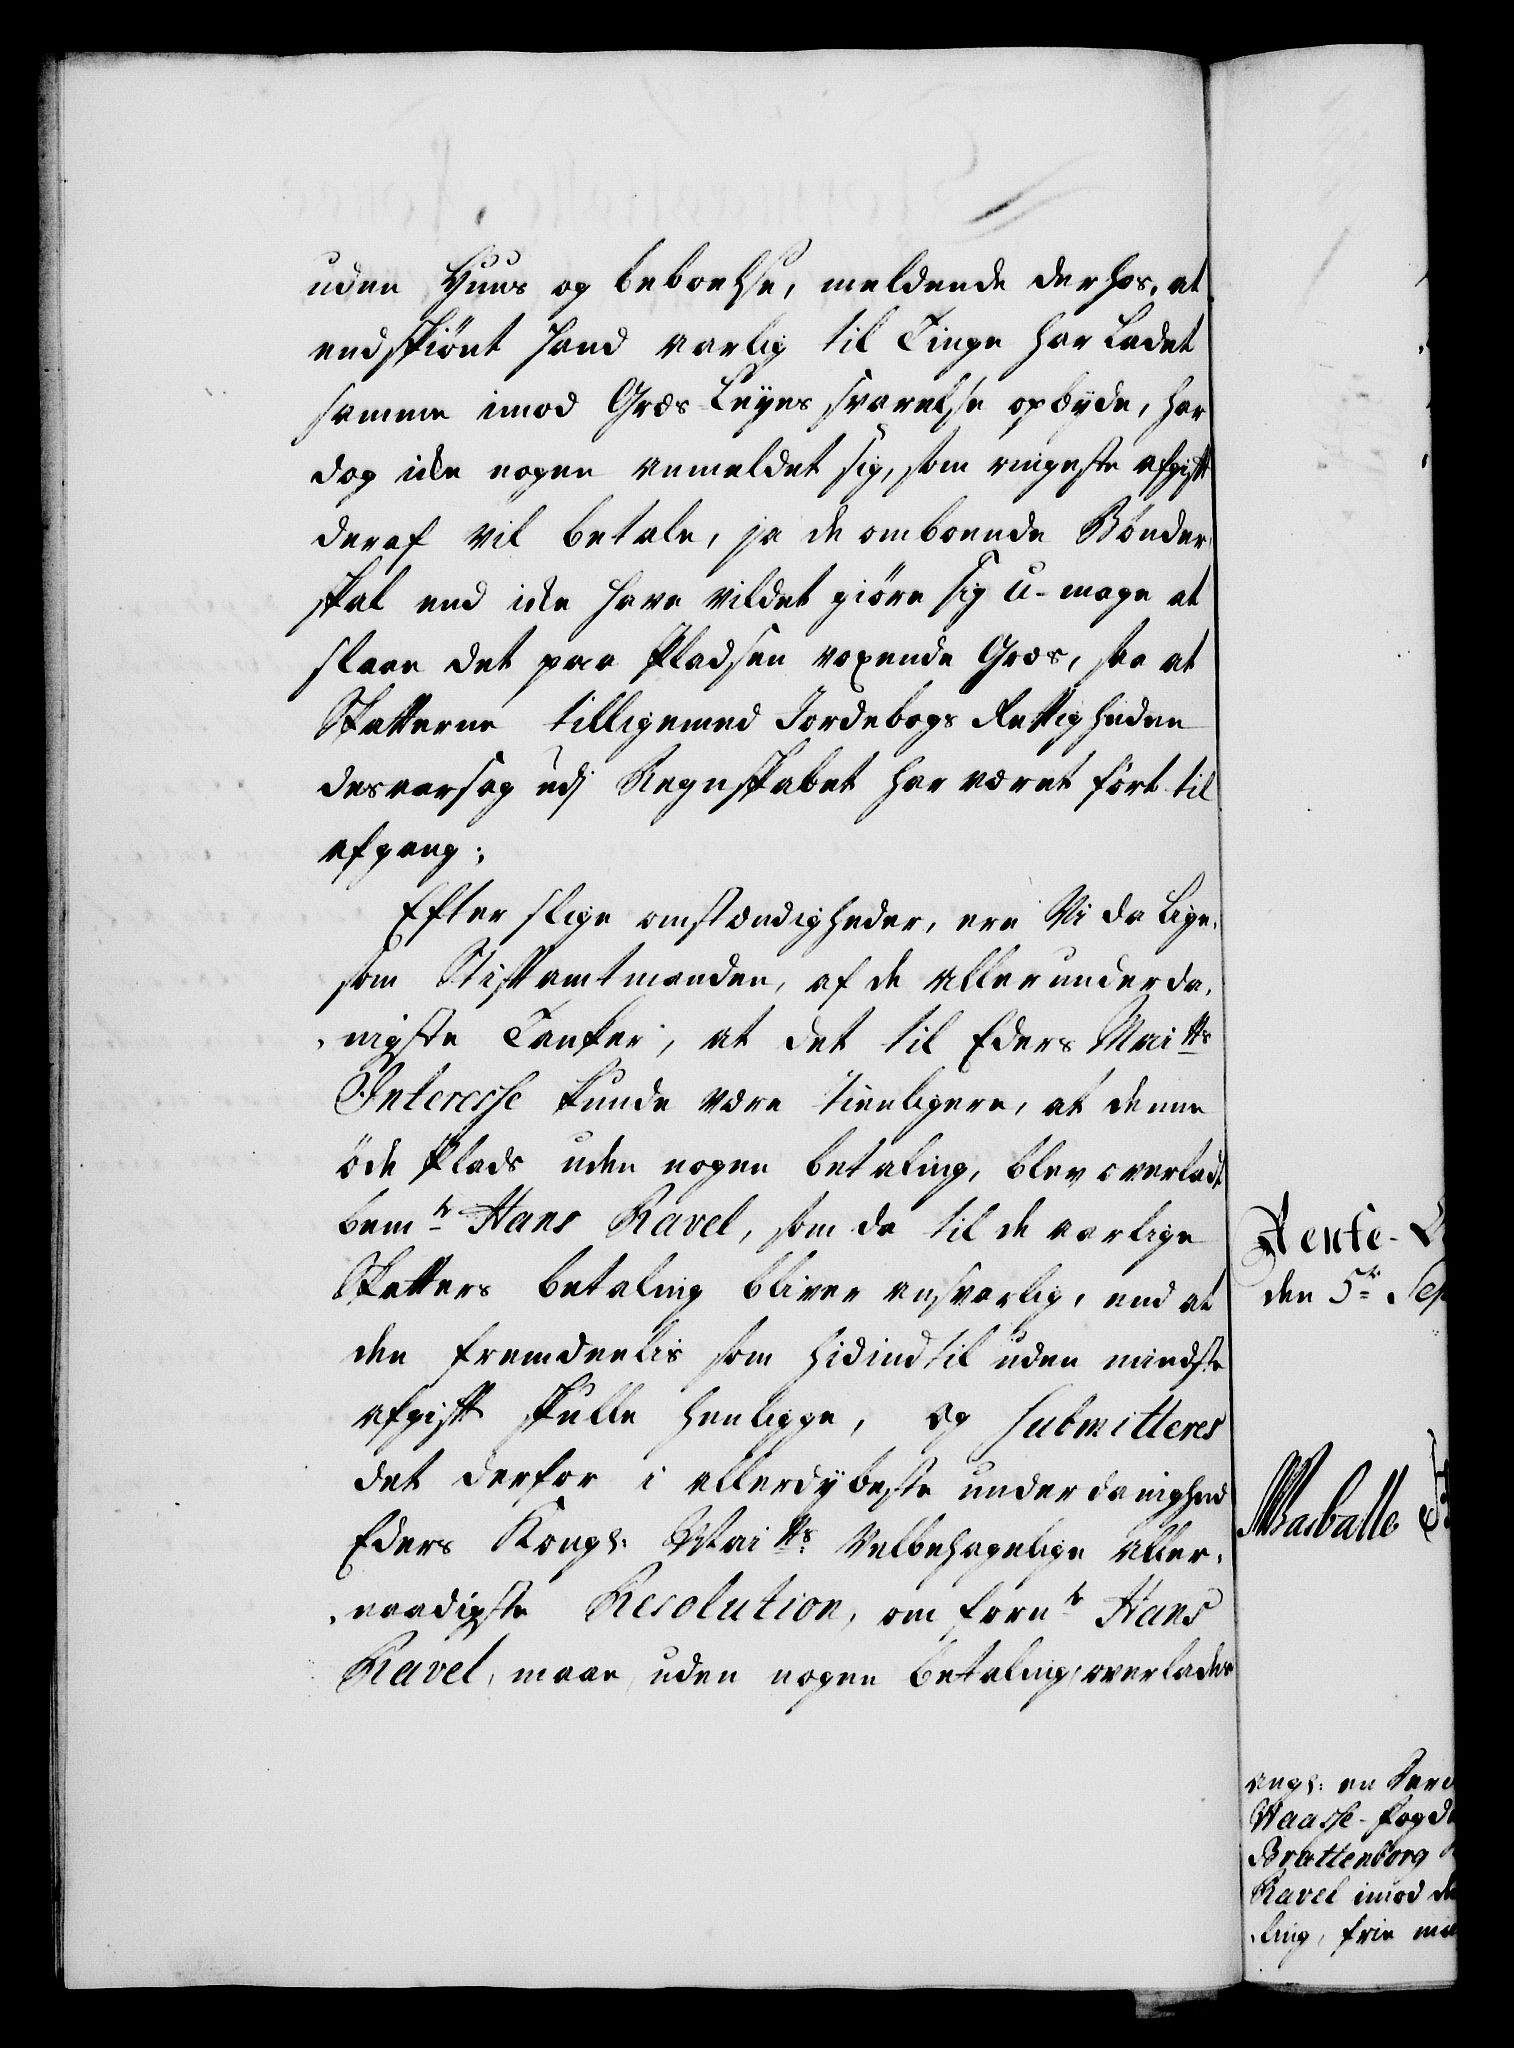 uden Huus og beboelse, meldende derhos, at
endskiönt hand aarlig til Tinge har Ladet
samme imod Græs-Leyes svarelse opbyde, har
dog icke nogen anmeldet sig, som ringeste afgift
deraf vil betale, ja de omboende Bönder
skal end icke have vildet giöre sig U-mage at
slaae det paa Pladsen voxende Græs, saa at
Skatterne tilligemed Jordebogs Rettigheden
desaarsag udj Regnskabet har været fört til
afgang;
Efter slige omstændigheder, ere Vi da lige-
som Stiftamtmanden, af de allerunderda-
-nigste Tanker, at det til Eders Mai tts
Interesse kunde være tienligere, at denne
öde Plads uden nogen betaling, blev overladt
bem te Hans Ravel, som da til de aarlige
Skatters betaling bliver ansvarlig, end at
den fremdeelis som hidindtil uden mindste
afgift skulle henligge, og submitteres
det derfor i allerdybeste underdanighed
Eders Kongl: Mai tts Velbehagelige aller-
-naadigste Resolution, om forn te Hans
Ravel, maae uden nogen betaling overlades
Rente-
den 5 te Sep
angl: en
Waasse-fogd
Brattenborg
Ravel imod de
-ling, frie